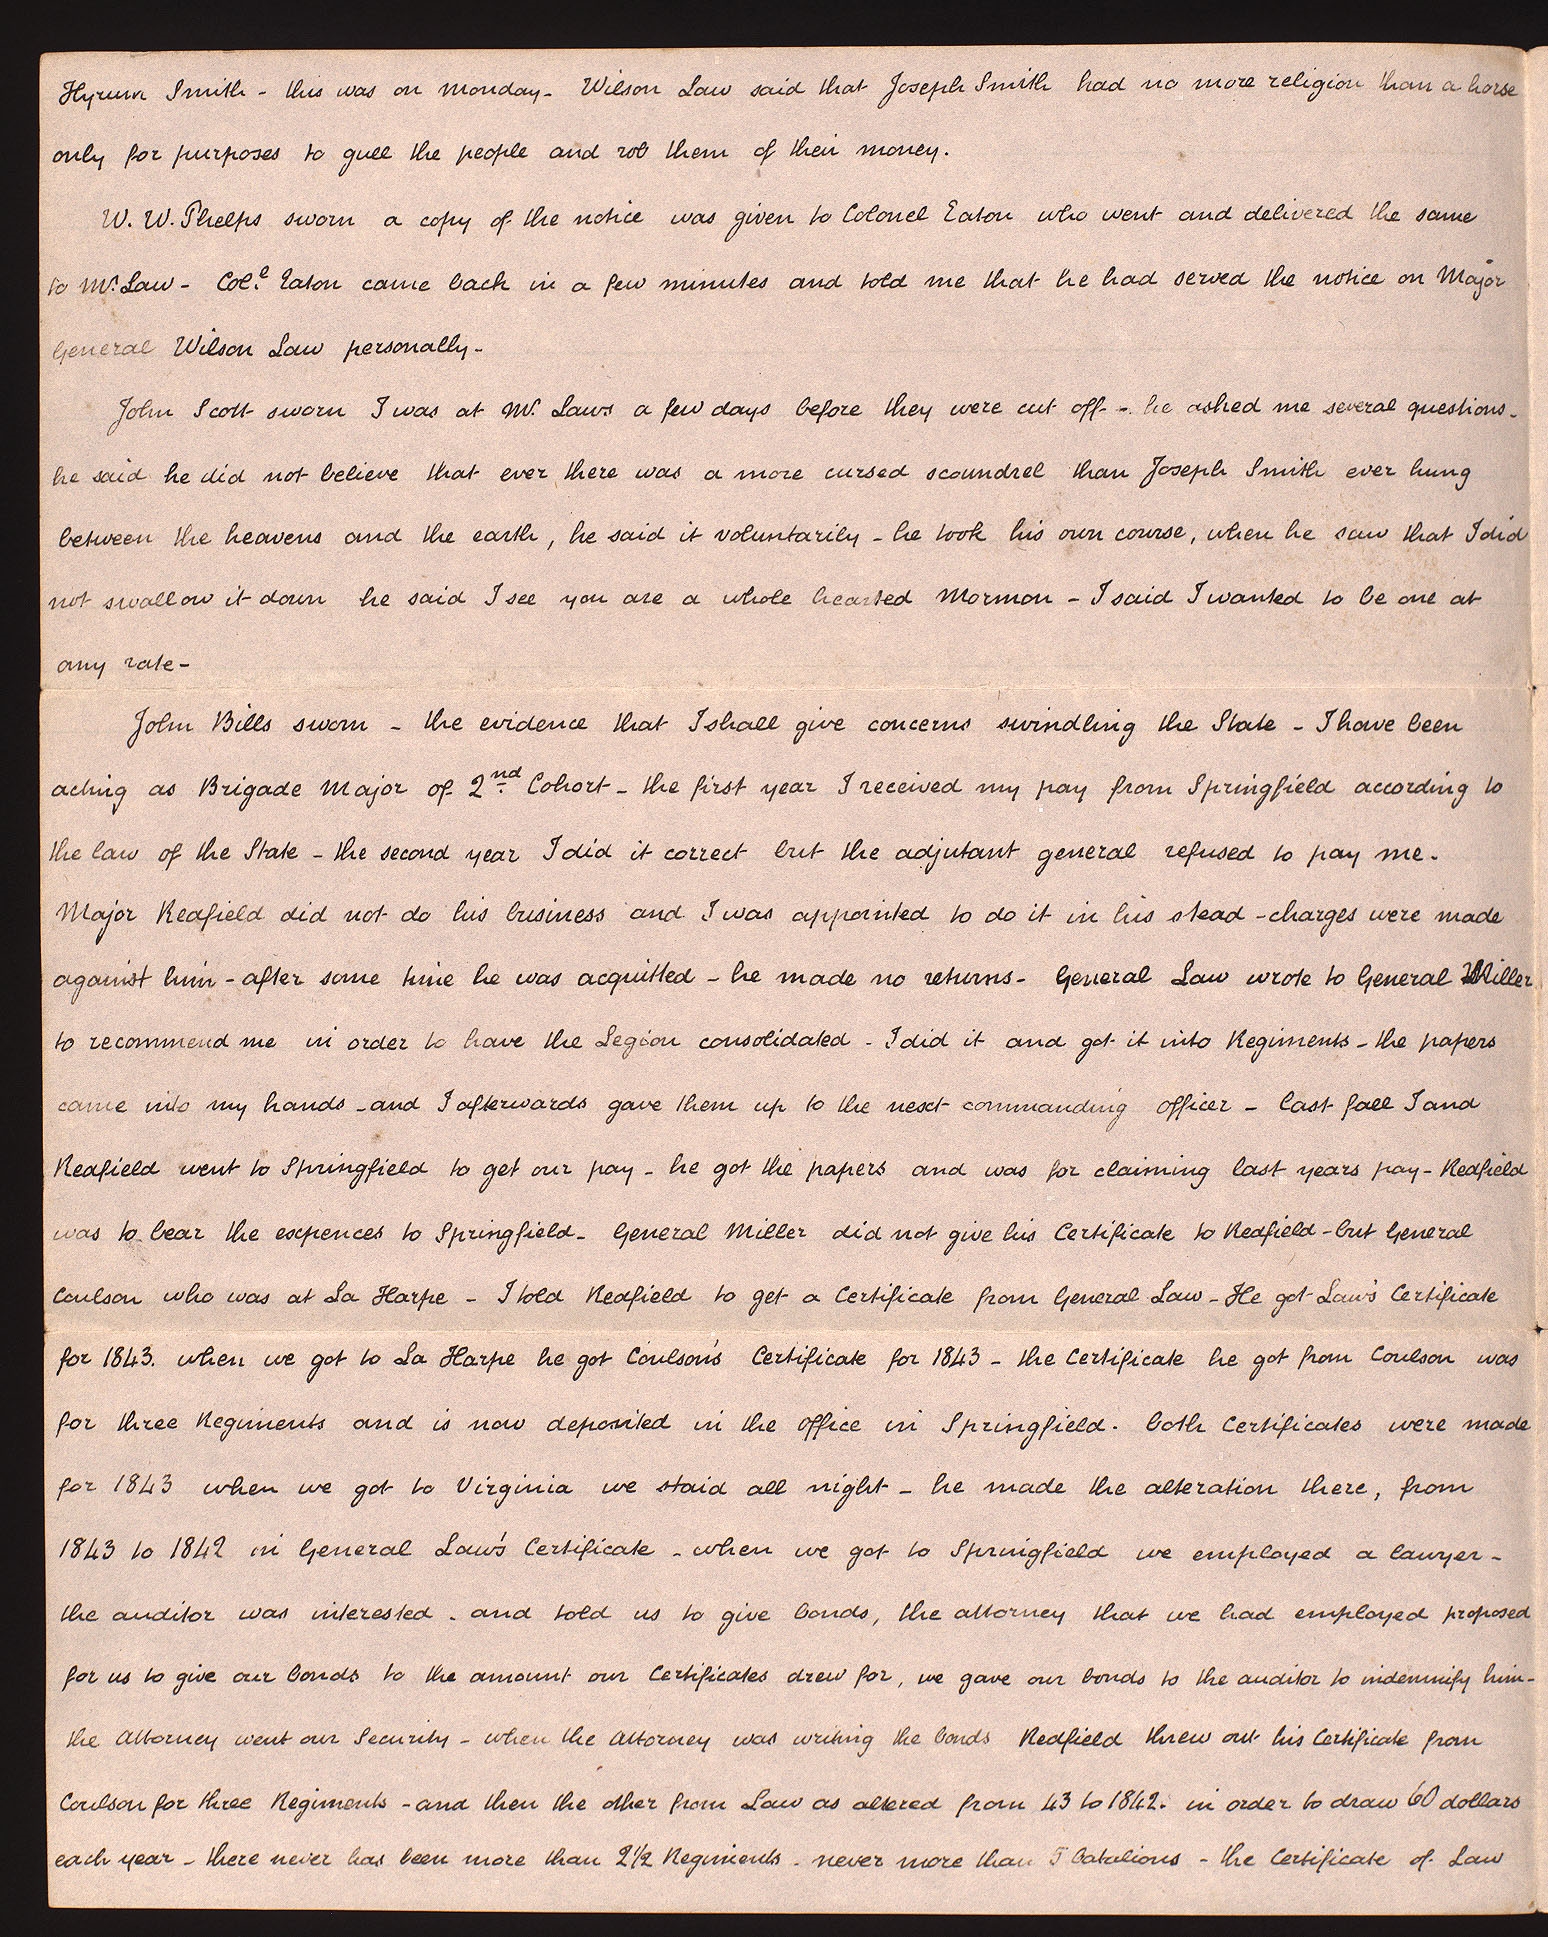 Hyrum Smith - this was on Monday - Wilson Law said that Joseph Smith had no more religion than a horse
only for purposes to gull the people and rob them of their money.
W. W. Phelps sworn a copy of the notice was given to Colonel Eaton who went and delivered the same
to Mr. Law - Col.l Eaton came back in a few minutes and told me that he had served the notice on Major
General Wilson Law personally -
John Scott sworn I was at Mr. Laws a few days before they were cut off - he asked me several questions -
he said he did not believe that ever there was a more cursed scoundrel than Joseph Smith ever hung
between the heavens and the earth, he said it voluntarily - he took his own course, when he saw that I did
not swallow it down he said I see you are a whole hearted Mormon - I said I wanted to be one at
any rate -
John Bills sworn - the evidence that I shall give concerns swindling the State - I have been
acting as Brigade Major of 2nd Cohort - the first year I received my pay from Springfield according to
the law of the State - the second year I did it correct but the adjutant general refused to pay me.
Major Redfield did not do his business and I was appointed to do it in his stead - charges were made
against him - after some time he was acquitted - he made no returns - General Law wrote to General Miller
to recommend me in order to have the Legion consolidated - I did it and got it into Regiments - the papers
came into my hands - and I afterwards gave them up to the next commanding officer - last fall I and
Redfield went to Springfield to get our pay - he got the papers and was for claiming last years pay - Redfield
was to bear the expences to Springfield - General Miller did not give his Certificate to Redfield - but General
Coulson who was at La Harpe - I told Redfield to get a Certificate from General Law - He got Law's Certificate
for 1843. when we got to La Harpe he got Coulson's Certificate for 1843 - the Certificate he got from Coulson was
for three Regiments and is now deposited in the office in Springfield. both Certificates were made
for 1843 when we got to Virginia we staid all night - he made the alteration there, from
1843 to 1842 in General Law's Certificate - when we got to Springfield we employed a lawyer -
the auditor was interested - and told us to give bonds, the attorney that we had employed proposed
for us to give our bonds to the amount our Certificates drew for, we gave our bonds to the auditor to indemnify him -
the Attorney went our Security - when the Attorney was writing the bonds Redfield threw out his Certificate from
Coulson for three Regiments - and then the other from Law as altered from 43 to 1842. in order to draw 60 dollars
each year - there never has been more than 2½ Regiments - never more than 5 Batalions - the Certificate of Law